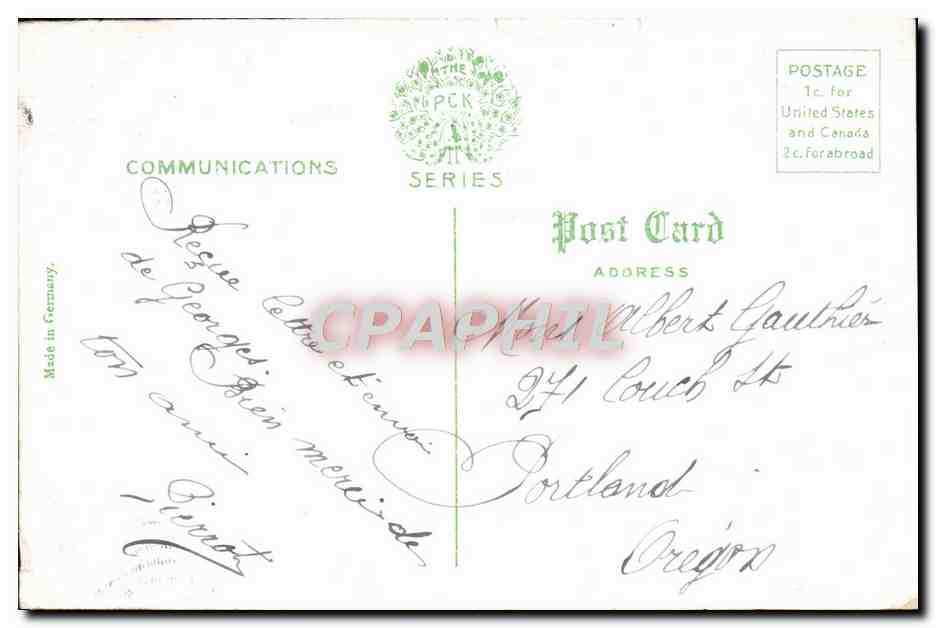 THE
PCK
SERIES
POSTAGE
1c. for
United States
and Canada
2c. for abroad
COMMUNICATIONS
Post Card
ADDRESS
Made in Germany.
Reçue lettre et envoi
de Georges. Bien merci de
ton ami
Pierrot
Albert Gauthier
271 Couch St
Portland
Orégon
CPAPHIL